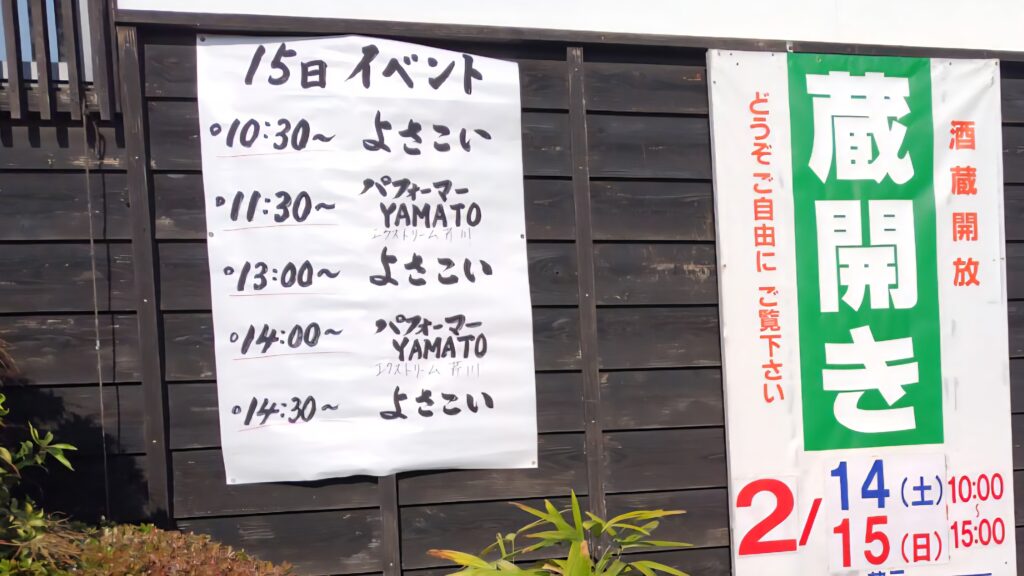 15日 イベント
10:30~ よさこい
11:30~ パフォーマー
YAMATO
エクストリーム芥川
13:00~ よさこい
14:00~ パフォーマー
YAMATO
エクストリーム芥川
14:30~ よさこい
酒蔵開放
蔵開き
どうぞご自由に ご覧下さい
2/14(土)15(日)
10:00~15:00